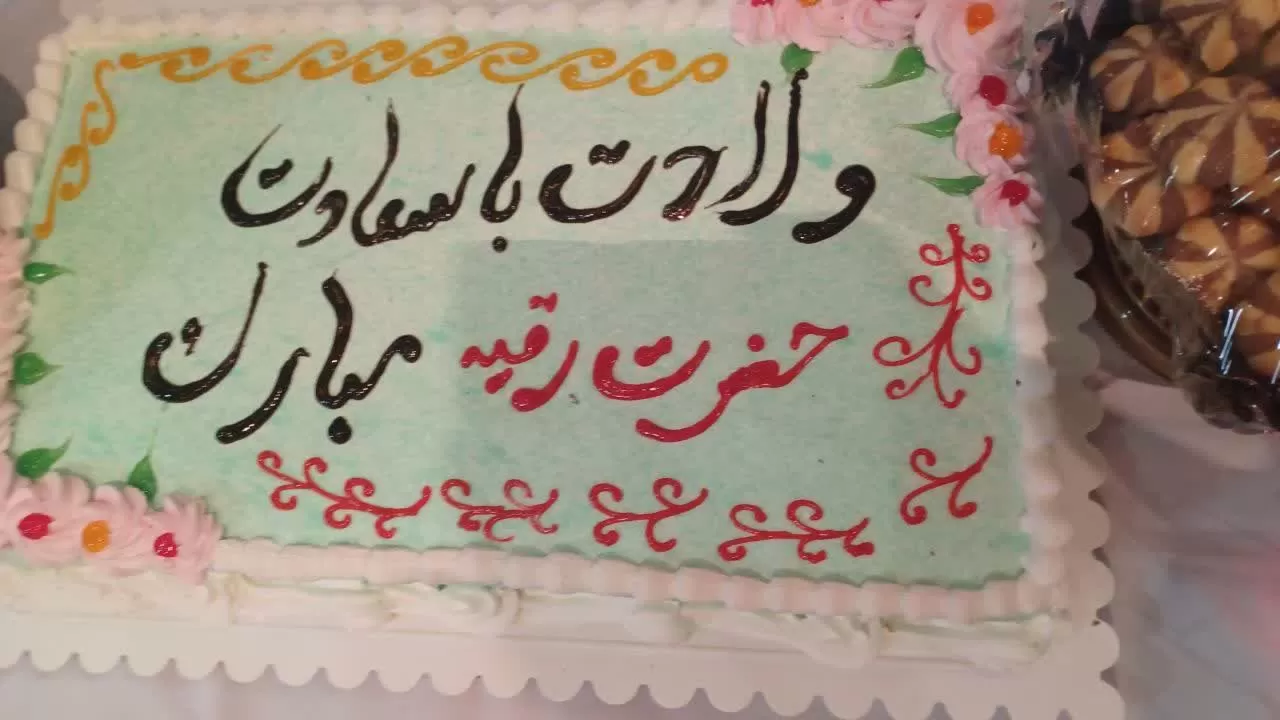 ولادت باسعادت
حضرت رقیه مبارک